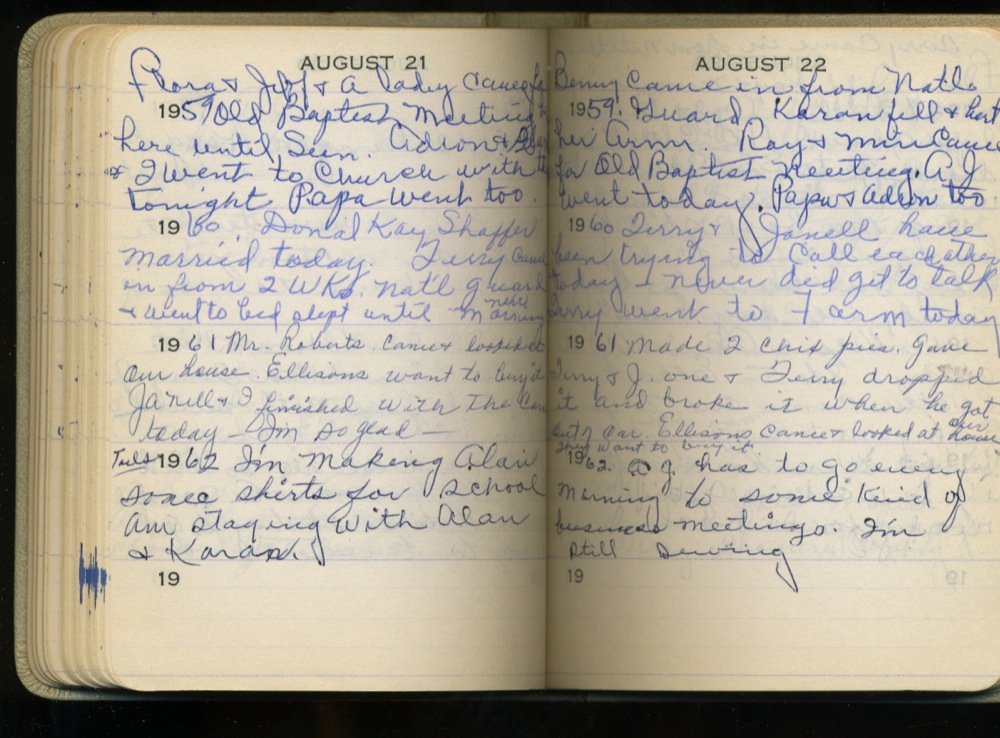 AUGUST 21
Flora & Jeff & A lady came for
1959 Old Baptist Meeting
here until Sun. Adron &
& I went to Church with
tonight Papa went too.
1960 Donal Kay Shaffer
married today. Terry came
in from 2 wks. natl guard
& went to bed slept until next morning
1961 Mr. Roberts came & looked at
our house. Ellisons want to buy it
Janell & I finished with The
today — I'm so glad —
Tues 1962 I'm making Alan
some shirts for school
am staying with Alan
& Karan.
19
AUGUST 22
Benny came in from Natl
1959. Guard. Karan fell & hurt
her Arm. Ray & Min came
for Old Baptist Meeting. A.J.
went today. Papa & Adron too.
1960 Terry & Janell have
been trying to call each other
today I never did get to talk
Larry went to farm today
1961 Made 2 chix pies. Gave
Terry & J. one & Terry dropped
it and broke it when he got
out of car. Ellisons came & looked at our house
They want to buy it
1962. A J. has to go every
morning to some kind of
business meetings. I'm
still sewing
19